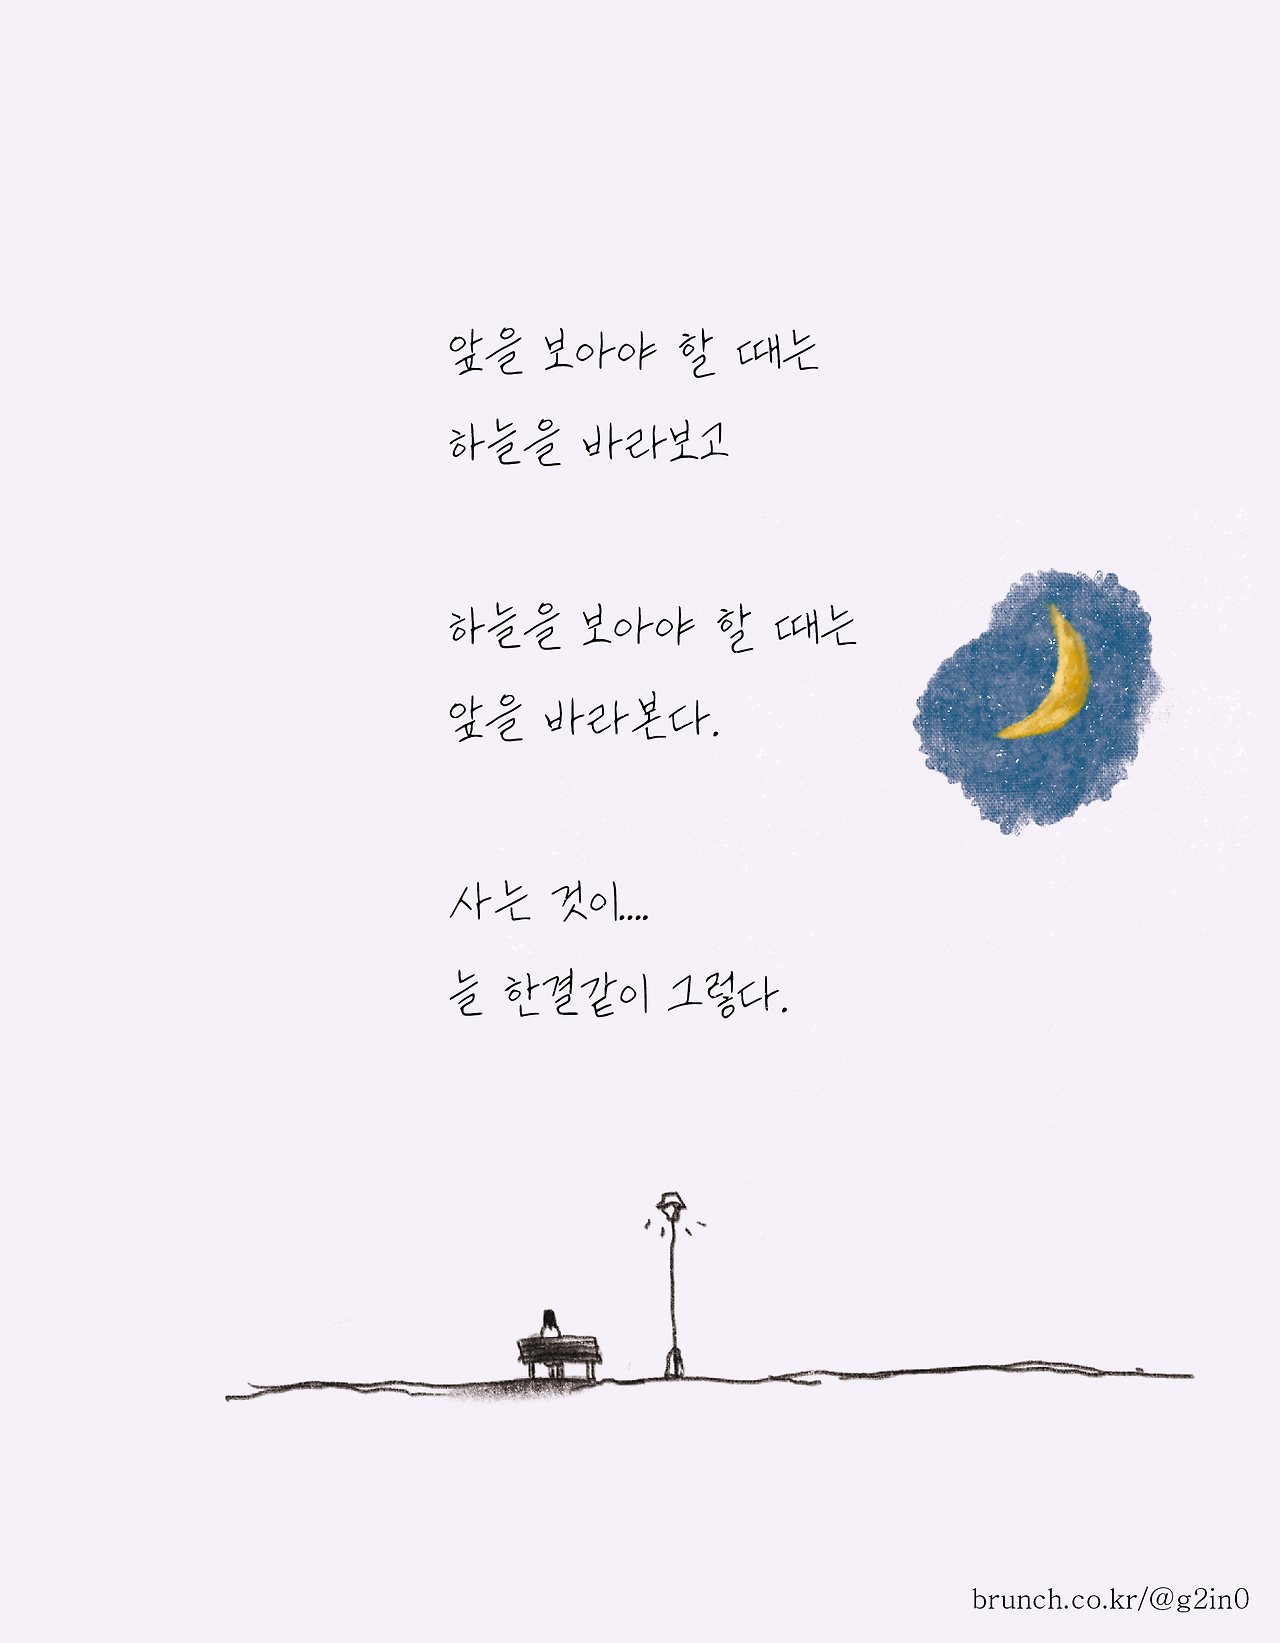 앞을 보아야 할 때는
하늘을 바라보고
하늘을 보아야 할 때는
앞을 바라본다.
사는 것이....
늘 한결같이 그렇다.
brunch.co.kr/@g2in0